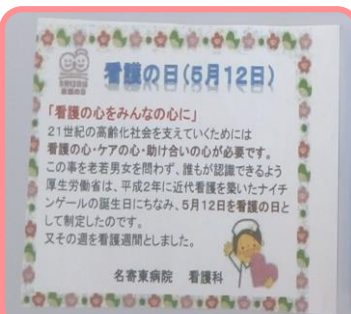 看護の日(5月12日)
「看護の心をみんなの心に」
21世紀の高齢化社会を支えていくためには
看護の心・ケアの心・助け合いの心が必要です。
この事を老若男女を問わず、誰もが認識できるよう
厚生労働省は、平成2年に近代看護を築いたナイチ
ンゲールの誕生日にちなみ、5月12日を看護の日と
して制定したのです。
又その週を看護週間としました。
名寄東病院 看護科